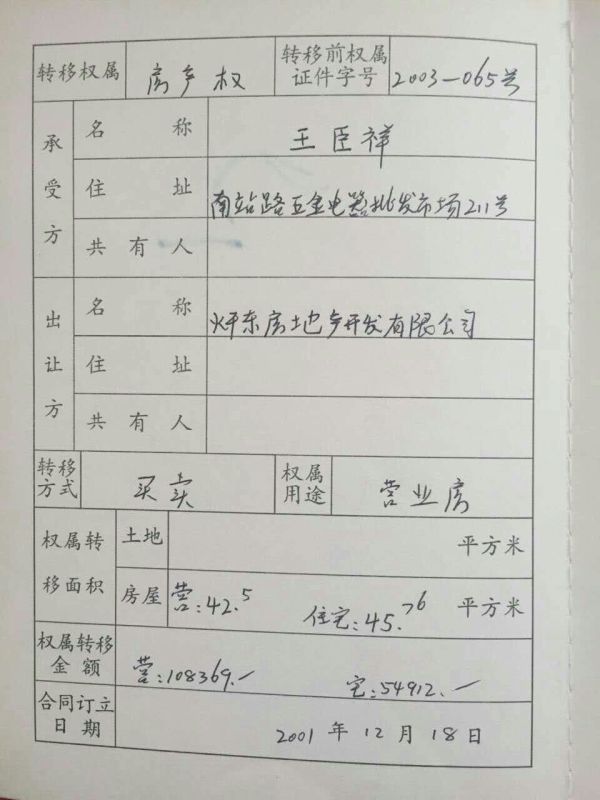 转移权属 房产权 转移前权属证件字号 2003-065号
承受方 名称 王臣祥
住址 南站路五金电器批发市场211号
共有人
出让方 名称 怀东房地产开发有限公司
住址
共有人
转移方式 买卖 权属用途 营业房
权属转移面积 土地 平方米
房屋 营:42.5 住宅:45.76 平方米
权属转移金额 营:108369.- 宅:54912.-
合同订立日期 2001年12月18日